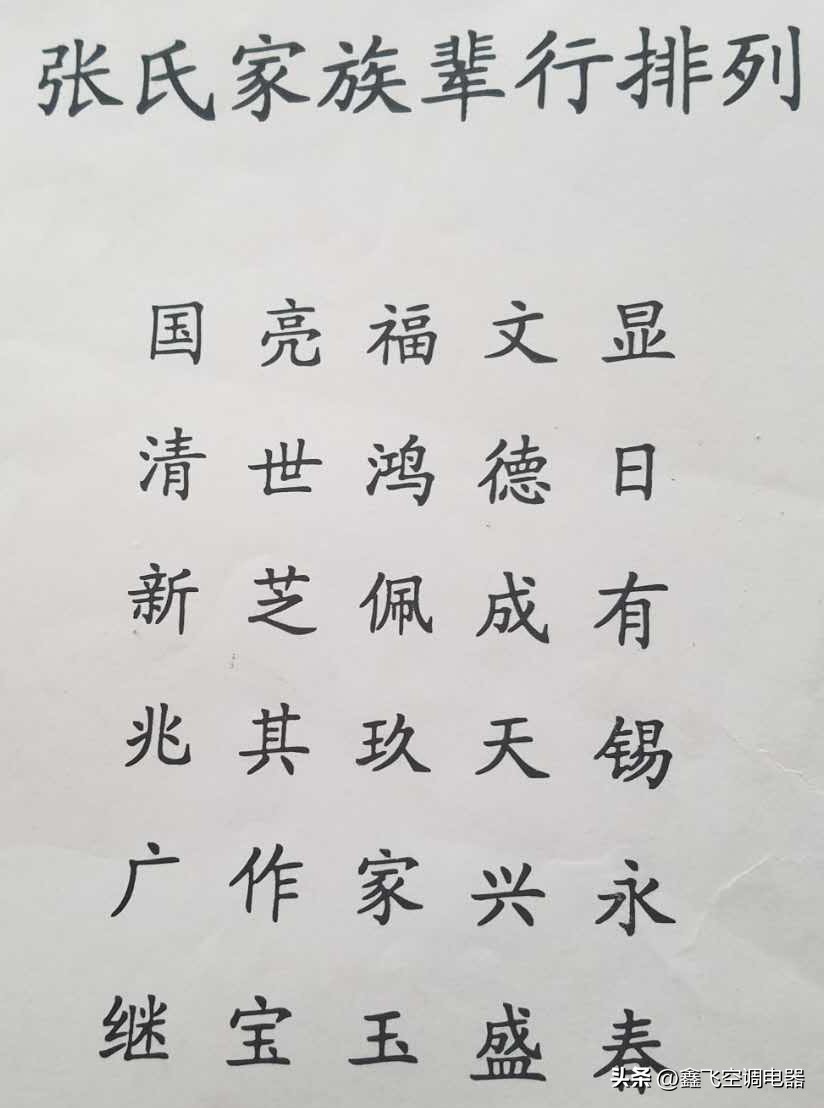 张氏家族辈行排列
国亮福文显
清世鸿德日
新芝佩成有
兆其玖天锡
广作家兴永
继宝玉盛春
头条 @鑫飞空调电器